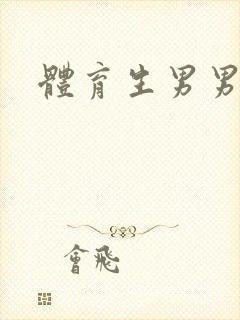 體育生男男
會飛